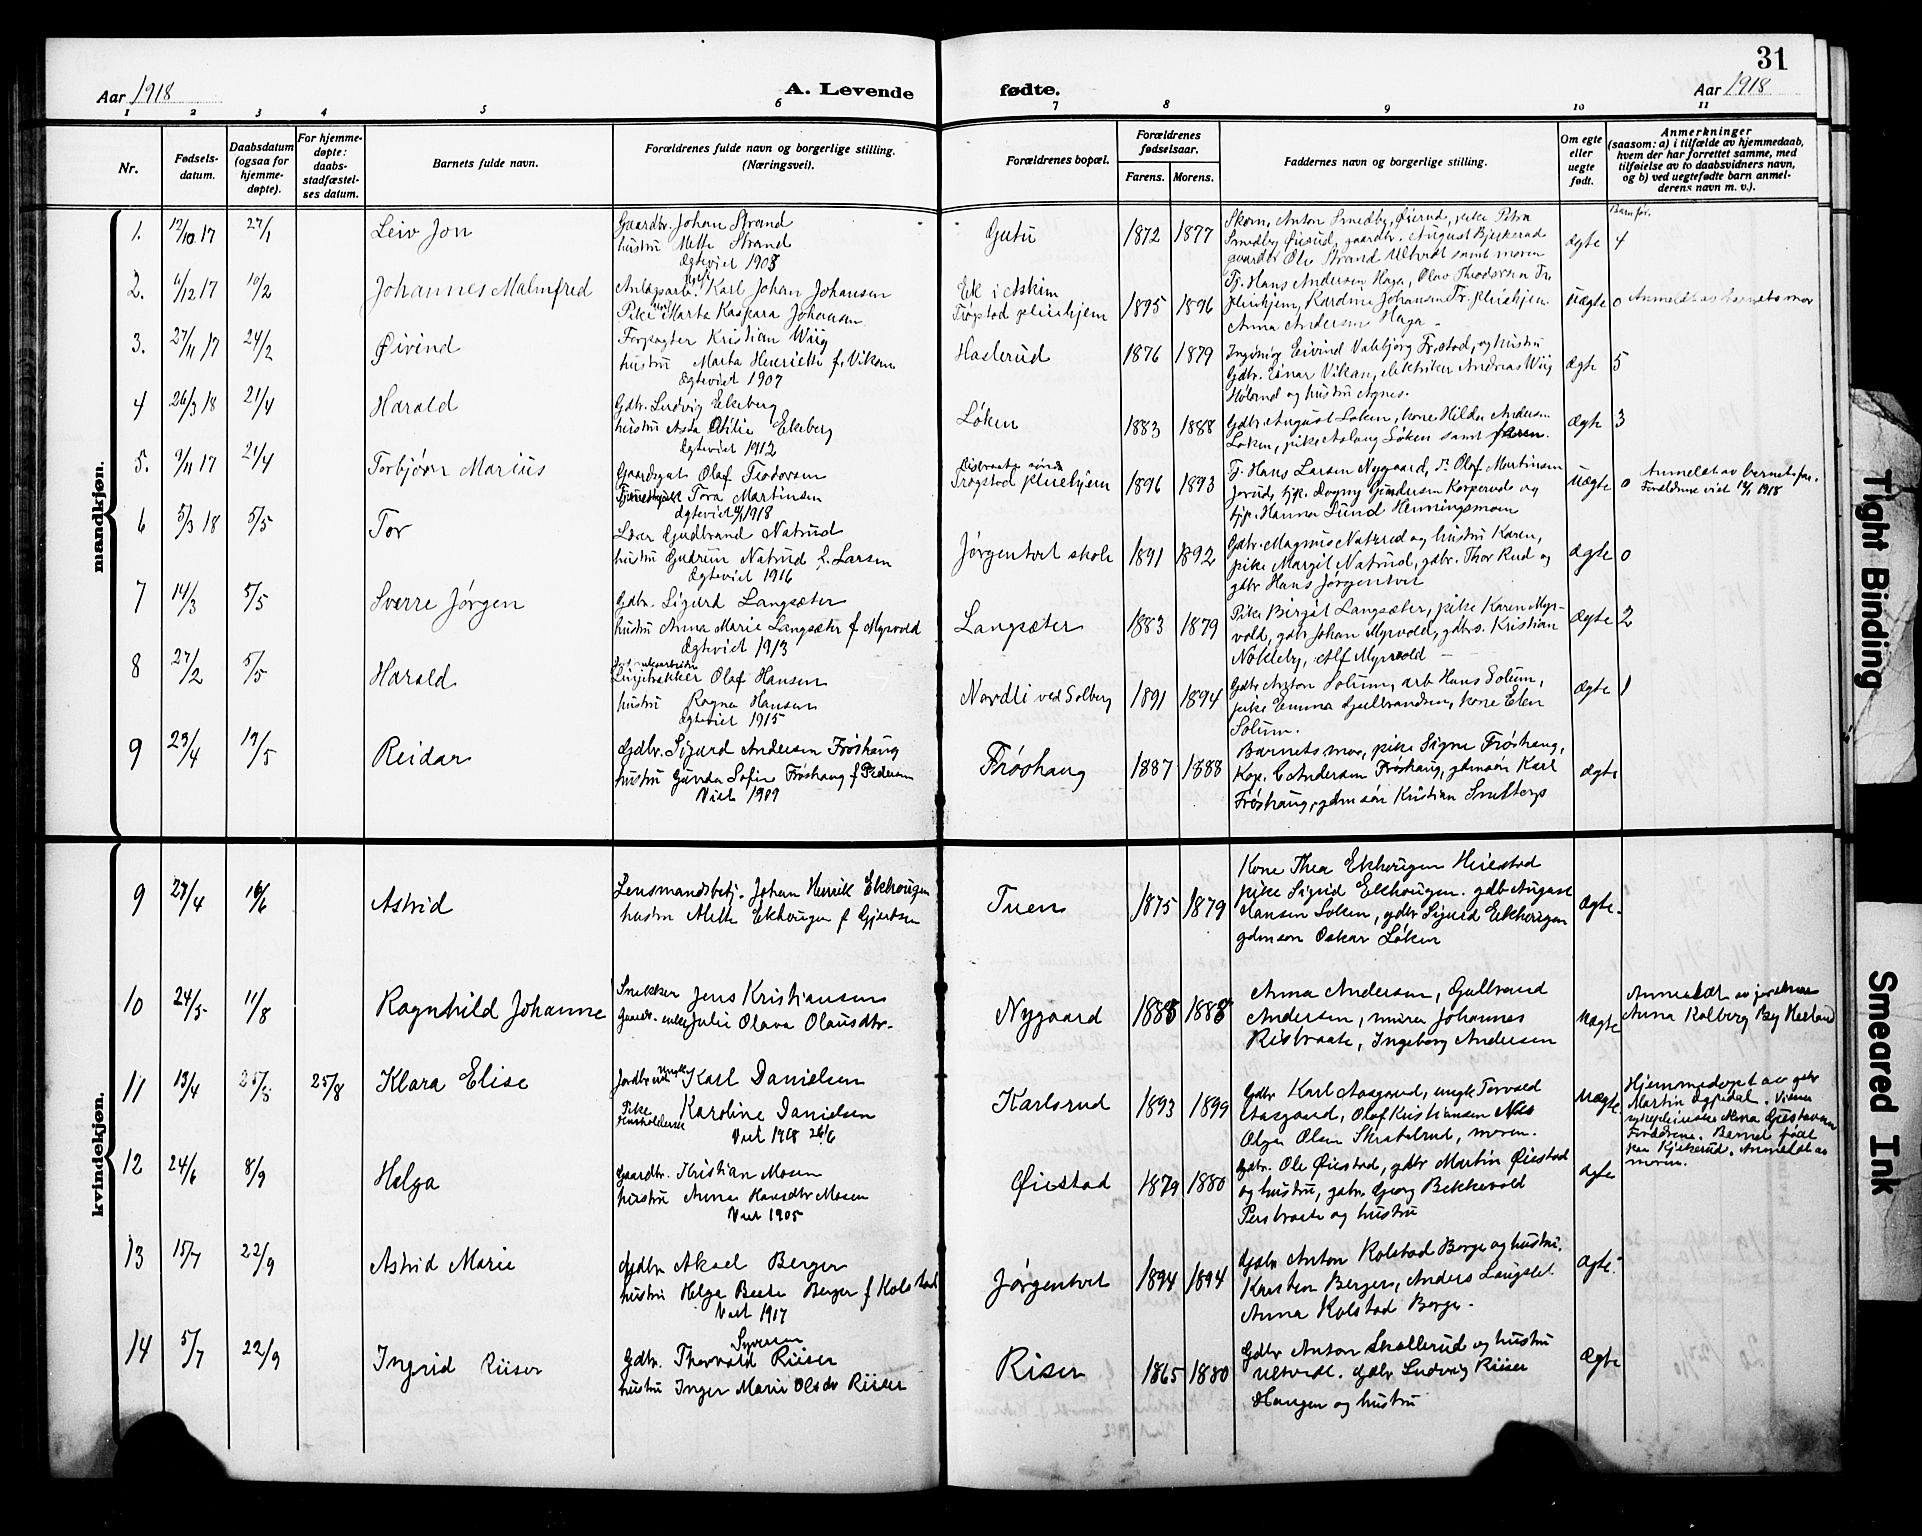 31
Aar 1918
A. Levende
fødte.
Aar 1918
1 2 3 4 5 6 7 8 9 10 11
Nr.
Fødsels-
datum.
Daabsdatum
(ogsaa for
hjemme-
døpte).
For hjemme-
døpte:
daabs-
stadfæstel-
ses datum.
Barnets fulde navn.
Forældrenes fulde navn og borgerlige stilling.
(Næringsvei).
Forældrenes bopæl.
Forældrenes
fødselsaar.
Farens. Morens.
Faddernes navn og borgerlige stilling.
Om egte
eller
uegte
født.
Anmerkninger
(saasom: a) i tilfælde av hjemmedaab,
hvem der har forrettet samme, med
tilføielse av to daabsvidners navn,
og b) ved uegtefødte barn anmel-
derens navn m. v.).
mandkjøn.
1. 12/10 17 27/1 Leiv Jon
Gaardbr. Johan Strand
hustru Mette Strand
Ægteviet 1903
Gutu 1872 1877
Skom. Anton Smedby, Øierud, pike Petra
Smedby Øierud, gaardbr. August Bjerkerud
gaardbr Ole Strand Ultvedt samt moren
Ægte
Barn før.
4
2. 6/12 17 10/2 Johannes Malmfred
Anlægsarb. Karl Johan Johansen
Pike Marta Kaspara Johansen
Ek i Askim
Trøgstad pleiehjem
1895 1896
Tj. Hans Andersen Haga, Olav Theodorsen Tr.
pleiehjem, Kardine Johansen Tr. pleiehjem.
Anna Andersen Haga -
Uægte 0 Anmeldt av barnets mor
3. 27/11 17 24/2 Øivind
Forpagter Kristian Wiig
hustru Marta Henriette f. Vikan
Ægteviet 1907
Haslerud 1876 1879
Ingeniør Eivind Valebjørg Fr.stad, og hustru
Gdbr. Einar Vikan, elektriker Andreas Wiig
Høland og hustru Agnes.
Ægte 5
4 26/3 18 21/4 Harald
Gdbr. Ludvig Ekeberg
hustru Asta Otilie Ekeberg
Ægteviet 1912
Løken 1883 1888
Gdbr. August Løken, kone Hilda Andersen
Løken, pike Aslaug Løken samt faren.
Ægte 3
5. 9/11 17 21/4 Torbjørn Marius
Gaardsgut Olaf Teodorsen
Tora Martinsen
Ægteviet 1918
Trøgstad pleiehjem 1896 1893
Tj. Hans Larsen Nygaard, Olaf Martinsen
Jorud, tjp. Dagny Gundersen Korperud og
tjp. Hanna Lund Henningsmoen
Uægte 0 Anmeldt av barnets far.
Forældrene viet 1918
6 5/3 18 5/5 Tor
Lærer Gudbrand Natrud
hustru Gudrun Natrud f. Larsen
Ægteviet 1916
Jørgentvet skole 1891 1892
Gdbr. Magnus Natrud og hustru Karen,
pike Margit Natrud, gdbr. Thor Rud og
gdbr Hans Jørgentvet
Ægte 0
7 14/3 5/5 Sverre Jørgen
Gdbr. Sigurd Langsæter
hustru Anna Marie Langsæter f Myrvold
Ægteviet 1913
Langsæter 1883 1879
Pike Birgit Langsæter, pike Karen Myr-
vold, gdbr Johan Myrvold, gdbs. Kristian
Nokleby, Alf Myrvold -
Ægte 2
8 27/2 5/5 Harald
Linjetrækker Olaf Hansen
hustru Ragna Hansen
Ægteviet 1915
Nordli ved Solberg 1891 1894
Gdbr Anton Solum, arb Hans Solum,
pike Emma Gulbrandsen, kone Elen
Solum.
Ægte 1
9 23/4 19/5 Reidar
Gdbr. Sigurd Andersen Frøshaug
hustru Gunda Sofie Frøshaug f Pedersen
Viet 1909
Frøshaug 1887 1888
Barnets mor, pike Signe Frøshaug,
Kap. C Andersen Frøshaug, gdmsøn Karl
Frøshaug, gdmsøn Kristian Snetbergs
ægte
kvindekjøn.
9 27/4 16/6 Astrid
Lensmandsbetj. Johan Henrik Ekhougen
hustru Mette Ekhougen f Gjertsen
Tuen 1875 1879
Kone Thea Ekhougen Heiestad
pike Sigrid Ekhougen. gdbr August
Hansen Løken, gdbr Sigurd Ekhougen
gdmsøn Oskar Løken
Ægte.
10 24/5 11/8 Ragnhild Johanne
Snekker Jens Kristiansen
Julie Olava Olausdtr.
Nygaard 1885 1888
Anna Andersen, Gulbrand
Andersen, murer Johannes
Risbraate, Ingeborg Andersen
Uægte
Anmeldt av jordmor
Anna Kolberg Høland
11 13/4 25/5 25/8 Klara Elise
Jordbr Karl Danielsen
Pike Karoline Danielsen
Viet 1918 26/6
Karlsrud 1893 1899
Gdbr Karl Aasgaard, ungk Torvald
Aasgaard, Olaf Kristiansen Nes
Olga Olsen Skrabelrud, moren.
Uægte
Hjemmedøpt av gdbr
Martin Opsdal. Vidner
Anna Gustavsen
Forældrene. Barnet født
paa Kjikerud. Anmeldt av
moren.
12 24/6 8/9 Helga
Gaardbr. Kristian Mosen
hustru Anna Hansdtr Mosen
Viet 1905
Øiestad 1879 1880
Gdbr. Ole Øiestad, gdbr Martin Øiestad
og hustru, gdbr Georg Bekkevold
Persbraate og hustru
ægte
13 15/7 22/9 Astrid Marie
Gdbr Aksel Berger
hustru Helga Beate Berger f Kolstad
Viet 1917
Jørgentvet 1894 1894
Gdbr Anton Kolstad Berge og hustru.
Kristian Berger, Anders Langslet.
Anna Kolstad Berge.
ægte.
14 5/7 22/9 Ingrid Riiser
Gdbr. Thorvald Riiser
hustru Inger Marie Olsdr Riiser
Riser 1865 1880
Gdbr Anton Skallerud og hustru
Ultvedt. gdbr Ludvig Riiser
Haugen og hustru
Ægte
Tight Binding
Smeared Ink